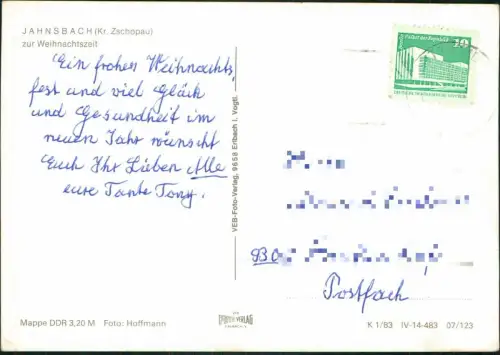 JAHNSBACH (Kr. Zschopau)
zur Weihnachtszeit
Ein frohes Weihnachts
fest und viel Glück
und Gesundheit im
neuen Jahr wünscht
Euch Ihr Lieben Alle
eure Tante Tony.
VEB-Foto-Verlag, 9658 Erlbach i. Vogtl.
Palast der Republik
10
930
Postfach
Mappe DDR 3,20 M Foto: Hoffmann
K 1/83 IV-14-483 07/123